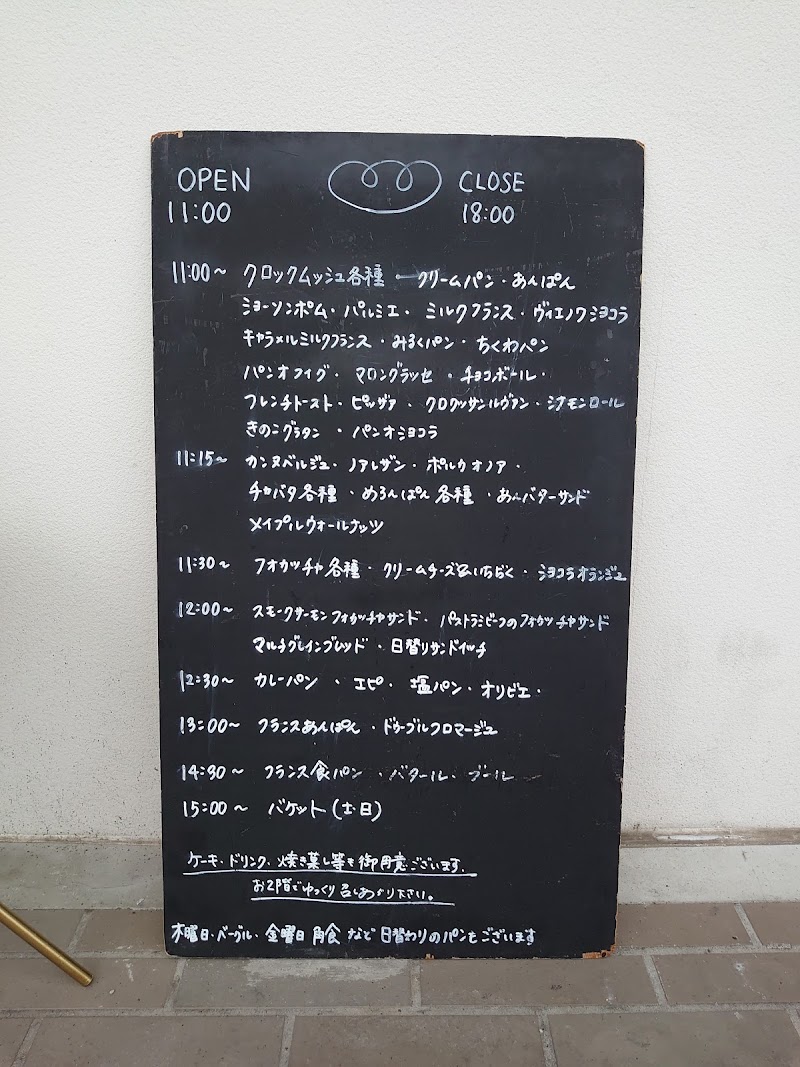 OPEN CLOSE
11:00 18:00
11:00～ クロックムッシュ各種・クリームパン・あんぱん
ショーソンポム・パルミエ・ミルクフランス・ヴィエノワショコラ
キャラメルミルクフランス・みるくパン・ちくわパン
パンオフィグ・マロングラッセ・チョコボール・
フレンチトースト・ピッツァ・クロワッサンルヴァン・シナモンロール
きのこグラタン・パンオショコラ
11:15～ カンヌベルジュ・ノアレザン・ポルカオノア・
チャバタ各種・めろんぱん各種・あんバターサンド
メイプルウォールナッツ
11:30～ フォカッチャ各種・クリームチーズ&いちじく・ショコラオランジュ
12:00～ スモークサーモンフォカッチャサンド・パストラミビーフのフォカッチャサンド
マルチグレインブレッド・日替りサンドイッチ
12:30～ カレーパン・エピ・塩パン・オリビエ・
13:00～ フランスあんぱん・ドゥーブルフロマージュ
14:30～ フランス食パン・バタール・ブール
15:00～ バケット(土・日)
ケーキ・ドリンク、焼き菓し等も御用意ございます。
お2階でゆっくり召しあがり下さい。
木曜日・ベーグル・金曜日 角食 など 日替わりのパンもございます